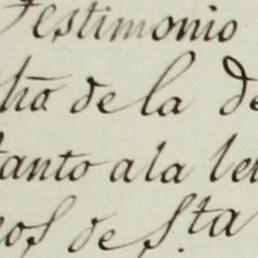 Testimonio
thõ de la de
tanto a la let
nos de S.ta